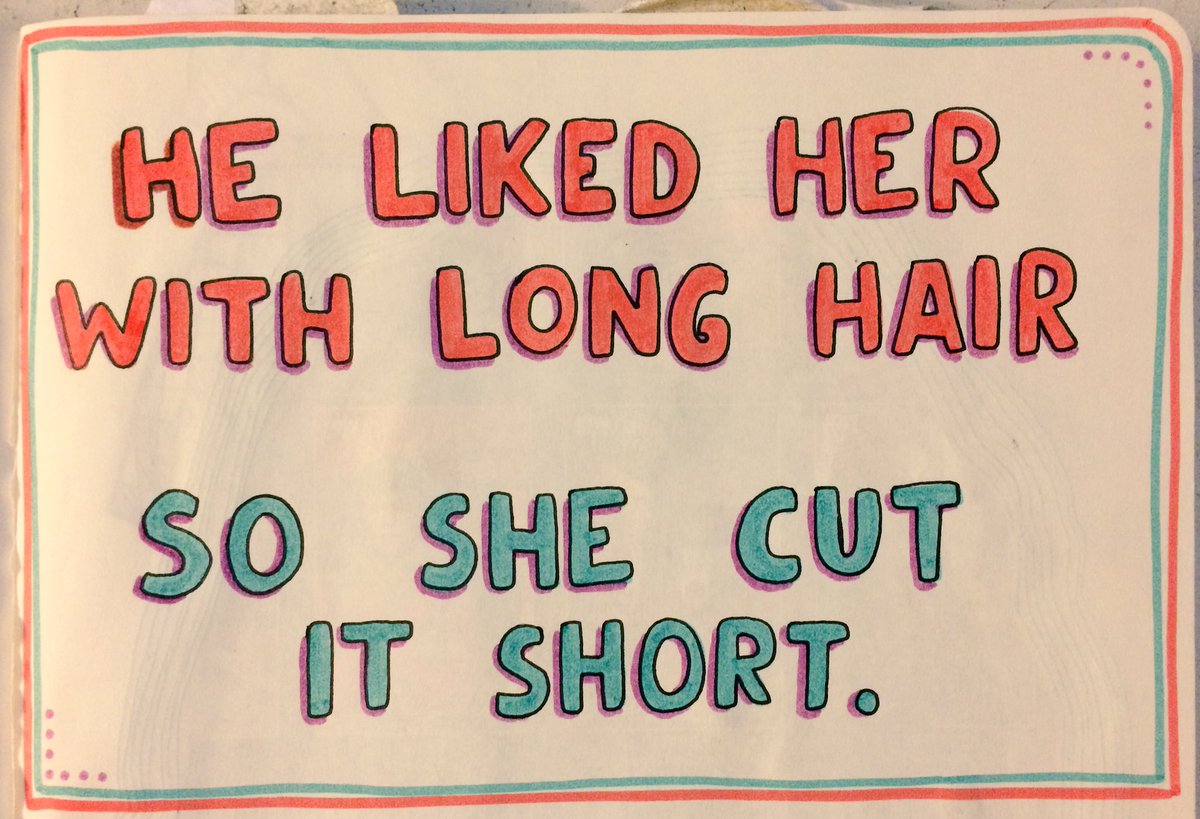 HE LIKED HER
WITH LONG HAIR
SO SHE CUT
IT SHORT.